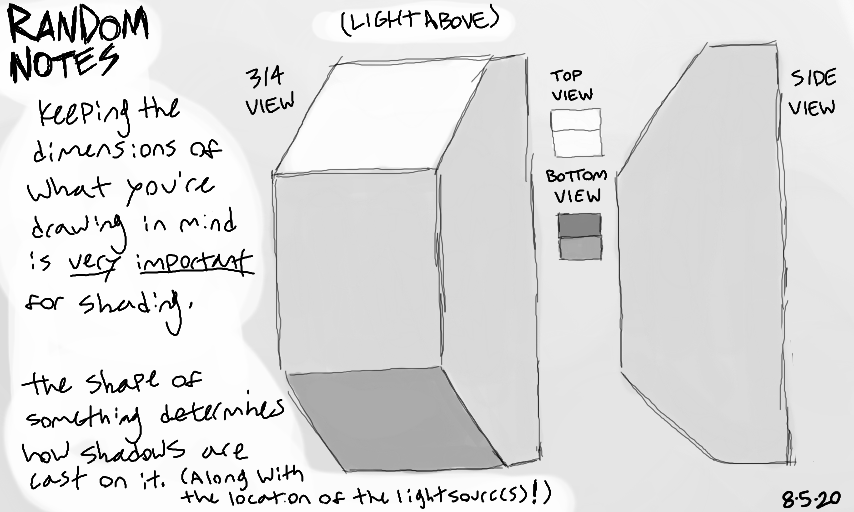 RANDOM
NOTES
keeping the
dimensions of
what you're
drawing in mind
is very important
for shading.
the shape of
something determines
how shadows are
cast on it. (Along with
the location of the lightsource(s)!)
(LIGHT ABOVE)
3/4
VIEW
TOP
VIEW
BOTTOM
VIEW
SIDE
VIEW
8.5.20